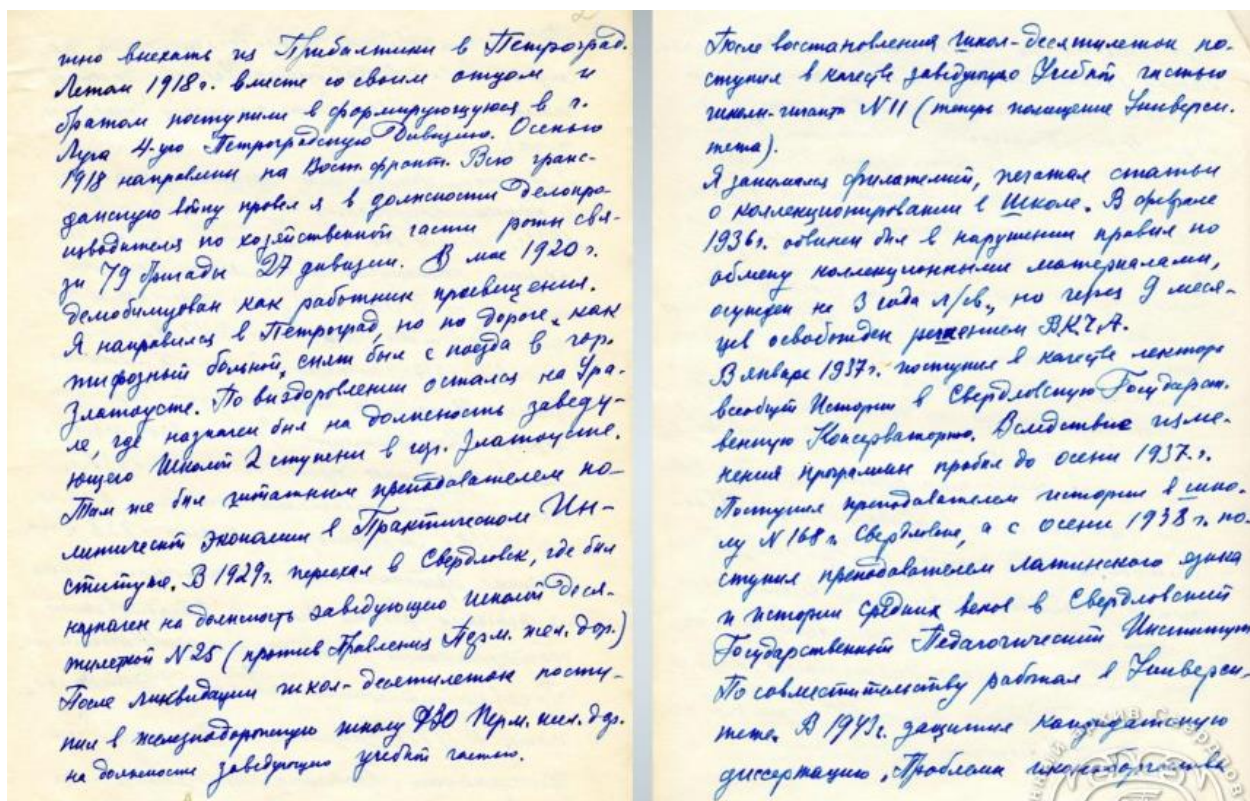 2
тно выехать из Прибалтики в Петроград.
Летом 1918 г. вместе со своим отцом и
братом поступили в формирующуюся в г.
Луга 4-ую Петроградскую Дивизию. Осенью
1918 направлены на Вост. фронт. Всю граж-
данскую войну провел я в должности делопро-
изводителя по хозяйственной части роты свя-
зи 79 бригады 27 дивизии. В мае 1920 г.
демобилизован как работник просвещения.
Я направился в Петроград, но по дороге, как
тифозный больной, снят был с поезда в гор.
Златоусте. По выздоровлении остался на Ура-
ле, где назначен был на должность заведу-
ющего Школой 2 ступени в гор. Златоусте.
Там же был штатным преподавателем по-
литической экономии в Практическом Ин-
ституте. В 1929 г. переехал в Свердловск, где был
назначен на должность заведующего школой Деся-
тилеткой N 25 (против Правления Перм. жел. дор.)
После ликвидации школ-десятилеток посту-
пил в железнодорожную школу ФЗО Перм. жел. дор.
на должность заведующего учебной частью.
После восстановления школ-десятилеток по-
ступил в качестве заведующего Учебной частью
школы-гиганта N 11 (теперь помещение Универси-
тета).
Я занимался филателией, печатал статьи
о коллекционировании в Школе. В феврале
1936 г. обвинен был в нарушении правил по
обмену коллекционными материалами,
осужден на 3 года л/св., но через 9 меся-
цев освобожден решением
В январе 1937 г. поступил в качестве лектора
всеобщей Истории в Свердловскую Государст-
венную Консерваторию. Вследствие изме-
нения программы пробыл до осени 1937 г.
Поступил преподавателем истории в шко-
лу N 168 г. Свердловска, а с осени 1938 г. по-
ступил преподавателем латинского языка
и истории средних веков в Свердловский
Государственный Педагогический Институт
По совместительству работал в Универси-
тете. В 1943 г. защитил кандидатскую
диссертацию „Проблема